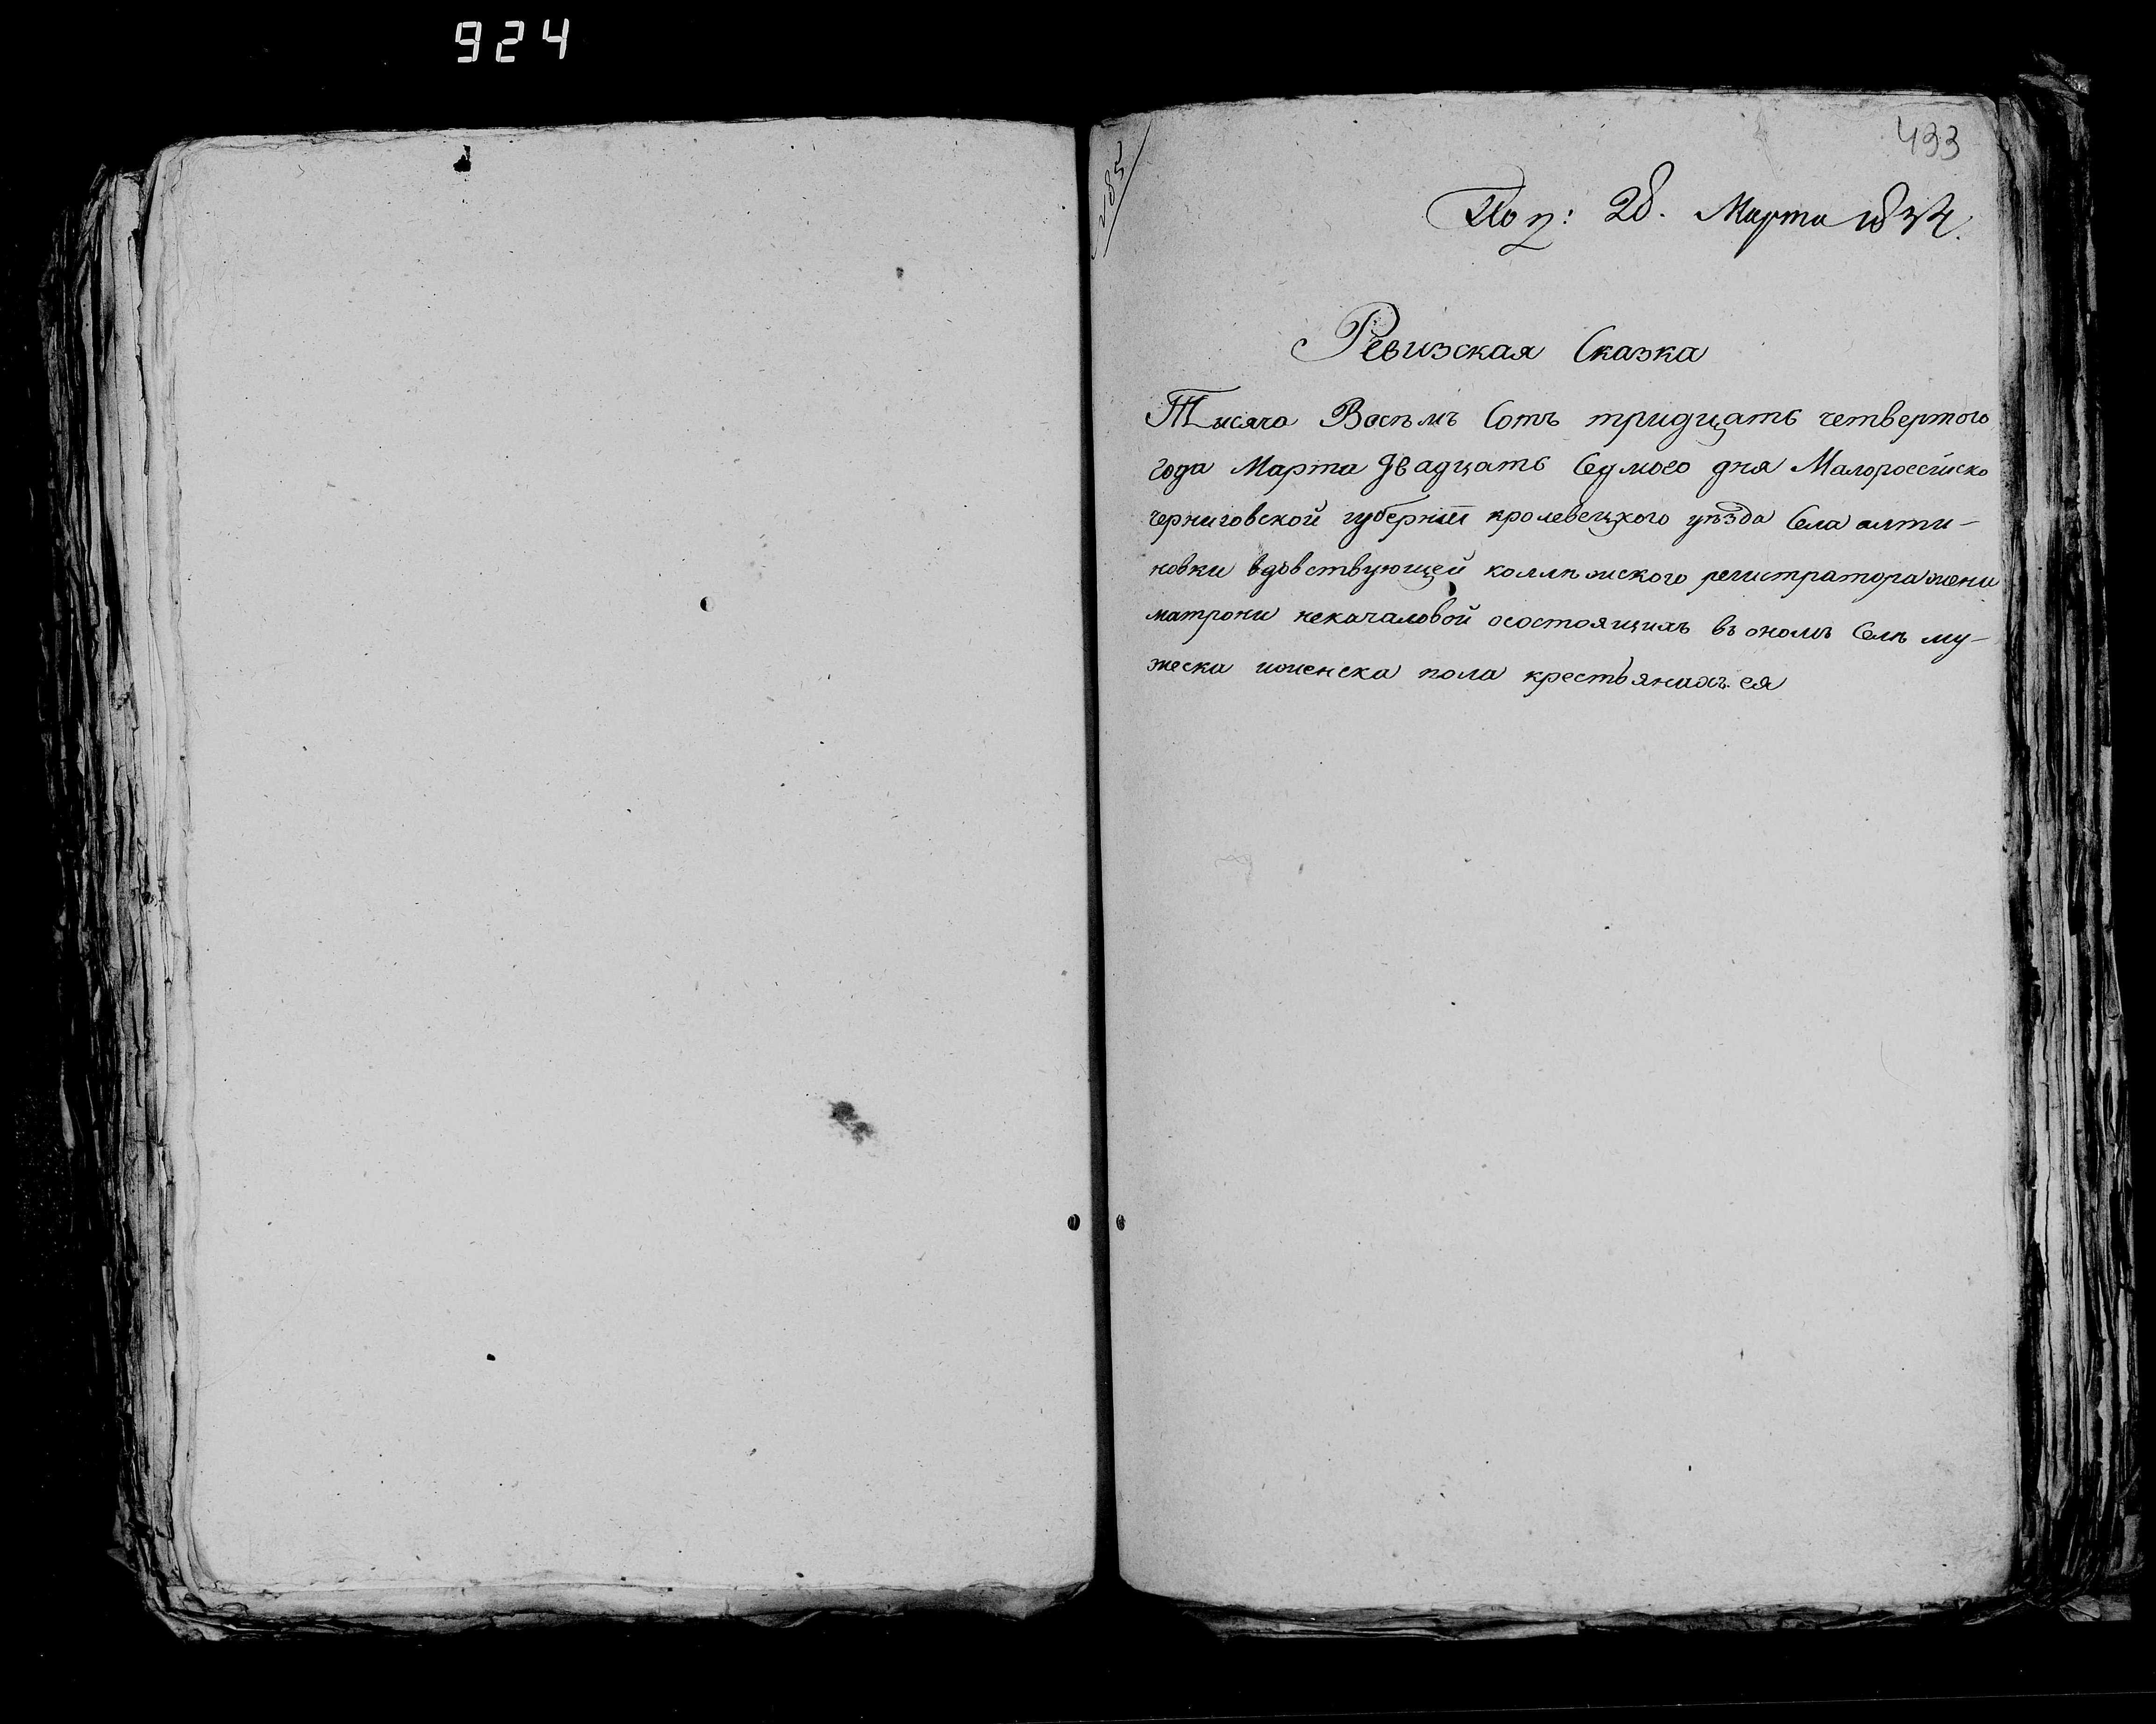 924
493
485
Пол: 28. Марта 1834.
Ревизская Сказка
Тисяча Восемъ Сотъ тридцать четвертого
года Марта двадцать Седмого дня Малороссійско
черниговской губерніи кролевецкого уѣзда Села алти-
новки вдовствующей коллѣжского регистратора жени
матрони некачаловой осостоящихъ въ ономъ Селѣ му-
жеска иженска пола крестьянихъ ея